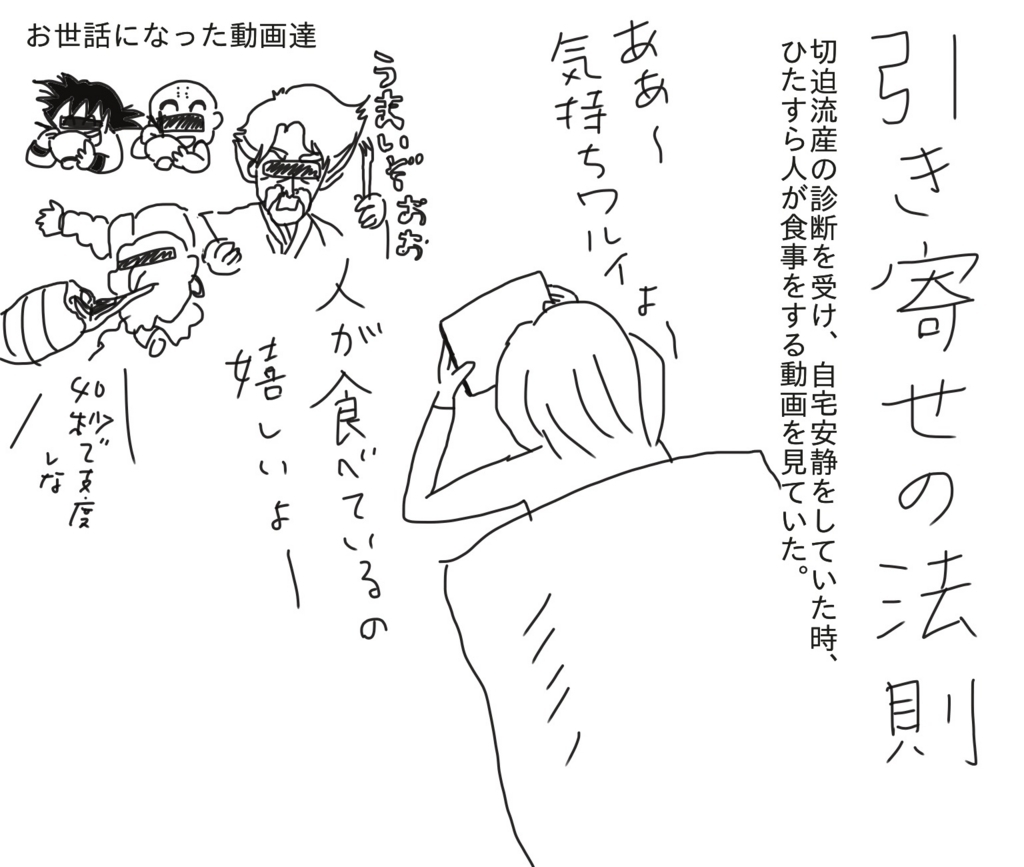 引き寄せの法則
切迫流産の診断を受け、自宅安静をしていた時、
ひたすら人が食事をする動画を見ていた。
ああ〜
気持ちワルイよー
お世話になった動画達
うまいぞおお
人が食べているの
嬉しいよー
40秒で支度
しな